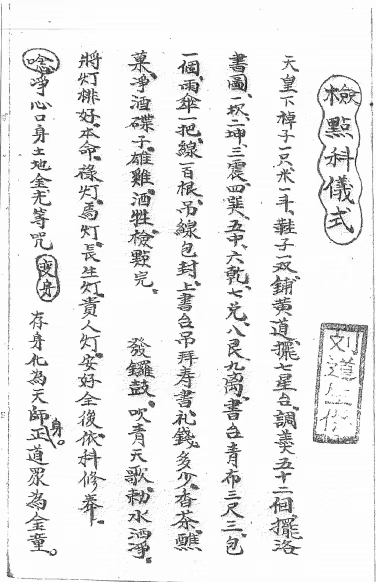 檢點科儀式
天皇下棹子一只米一斗、鞋子一双鋪黃道、擺七星台、調羹五十二個、擺洛
書圖、一坎二坤三震四巽、五中、六乾、七兌、八艮九离、書台青布三尺三、包
一個、雨傘一把、線一百根、吊線包封上書台吊拜寿書礼錢多少、香茶、醮
菓、淨酒碟子、雄雞酒牲、檢點完。 發鑼鼓、吹青天歌、勑水洒淨、
將灯排好、本命、祿灯、馬灯、長生灯、貴人灯、安好全後、依科修奉。
唸淨心口身土地金光等咒 變身 存身化為天師正身。道眾為金童。
刘道生